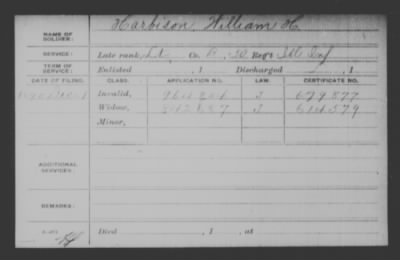 NAME OF SOLDIER: Harbison, William H.
SERVICE: Late rank, Lt, Co. A, 30 Reg't Ill Inf
TERM OF SERVICE: Enlisted , 1 Discharged , 1
DATE OF FILING. CLASS. APPLICATION NO. LAW. CERTIFICATE NO.
Invalid, J 679877
Widow, J 614579
Minor,
ADDITIONAL SERVICES:
REMARKS:
Died , 1 , at